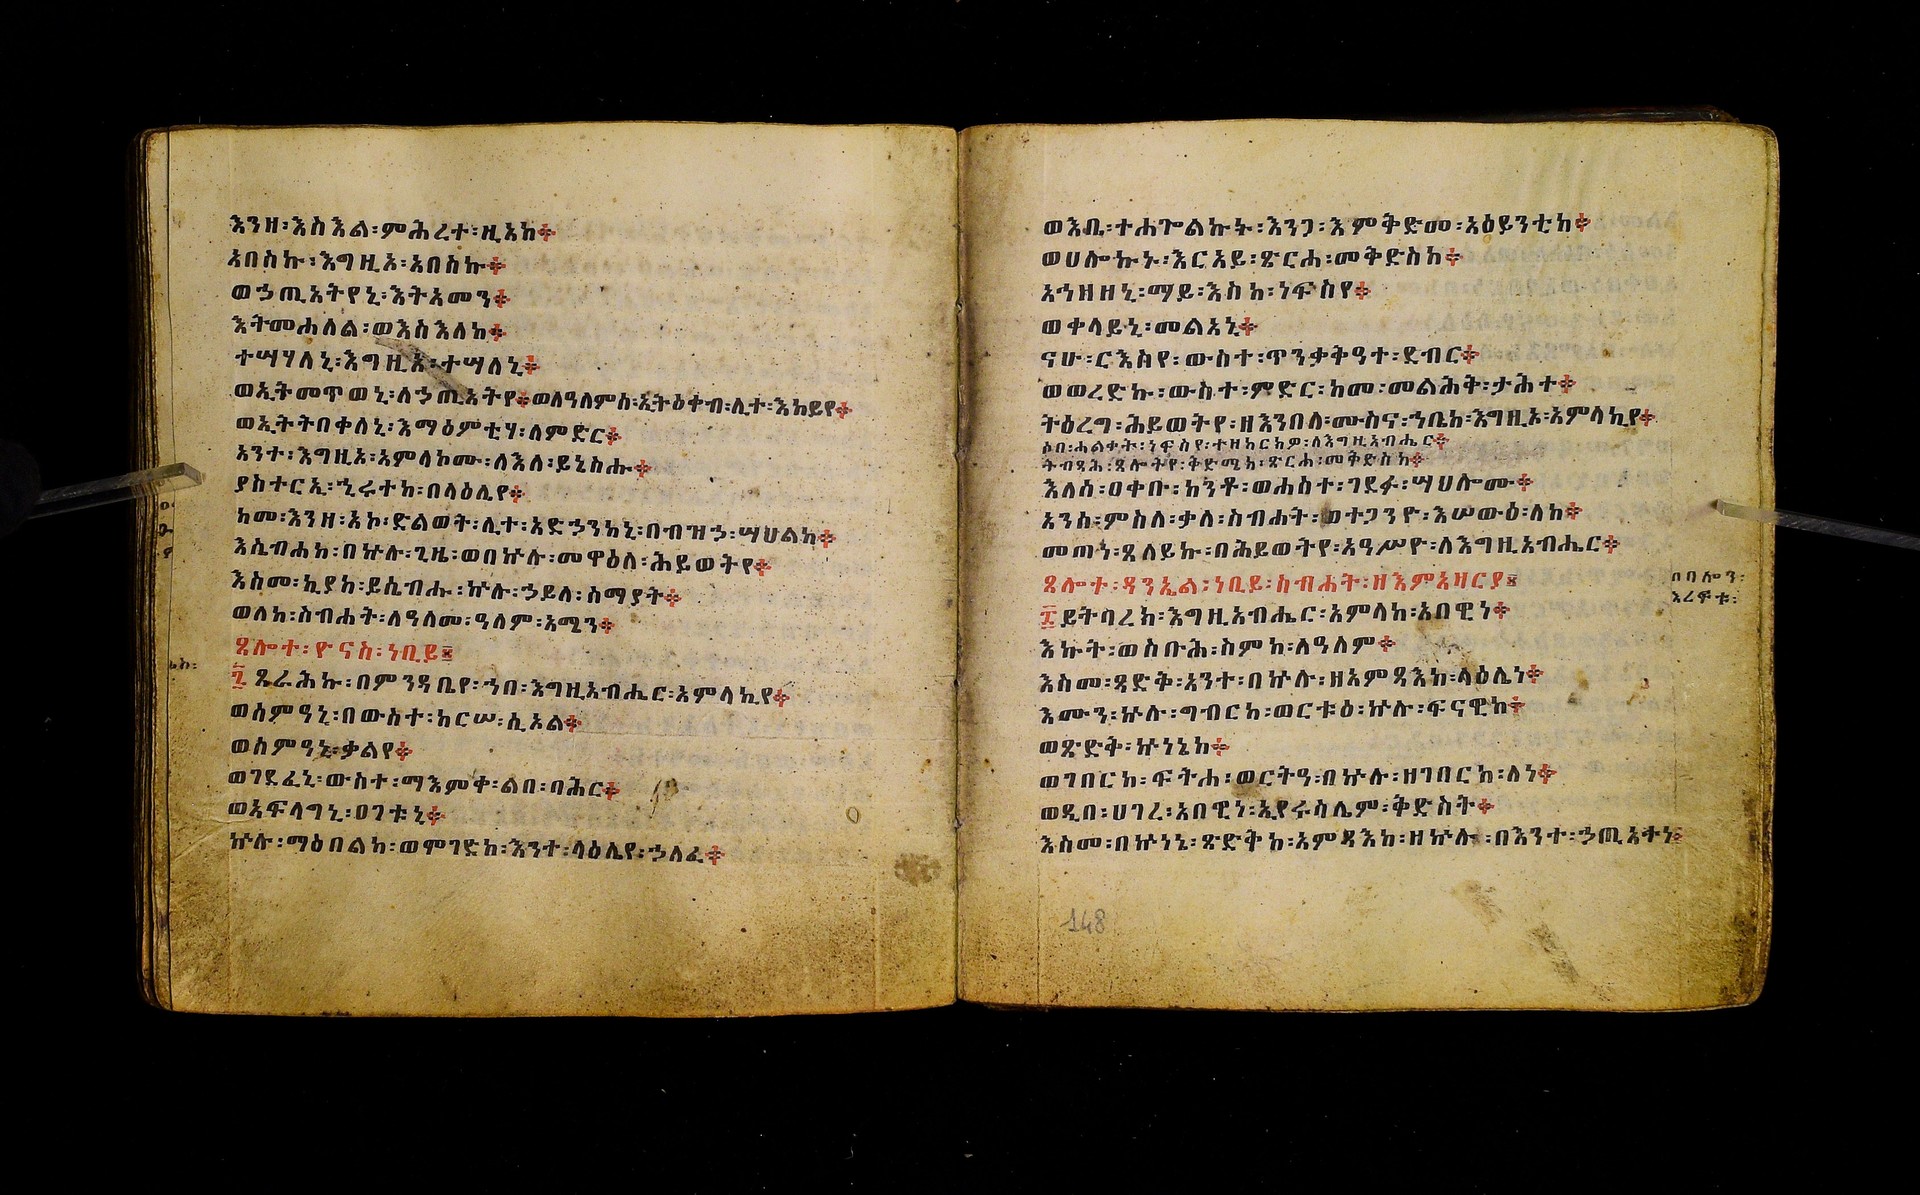 እንዘ፡እስእል፡ምሕረተ፡ዚአከ፨
አበስኩ፡እግዚኦ፡አበስኩ፨
ወኃጢአትየኒ፡እትአመን፨
እትመሐለል፡ወእስእለከ፨
ተሣሃለኒ፡እግዚኦ፡ተሣለኒ፨
ወኢትመጥወኒ፡ለኃጢአትየ፨ወለዓለምሰ፡ኢትዕቀብ፡ሊተ፡እከይየ፨
ወኢትትበቀለኒ፡እማዕምቲሃ፡ለምድር፨
አንተ፡እግዚኦ፡አምላኮሙ፡ለእለ፡ይኔስሑ፨
ያስተርኢ፡ኂሩተከ፡በላዕሌየ፨
ከመ፡እንዘ፡አኮ፡ድልወት፡ሊተ፡አድኃንከኒ፡በብዝኃ፡ሣህልከ፨
እሴብሐከ፡በኵሉ፡ጊዜ፡ወበኵሉ፡መዋዕለ፡ሕይወትየ፨
እስመ፡ኪያከ፡ይሴብሑ፡ኵሉ፡ኃይለ፡ሰማያት፨
ወለከ፡ስብሐት፡ለዓለመ፡ዓለም፡አሜን፨
ጸሎተ፡ዮናስ፡ነቢይ።
፯ ጸራሕኩ፡በምንዳቤየ፡ኀበ፡እግዚአብሔር፡አምላኪየ፨
ወሰምዓኒ፡በውስተ፡ከርሠ፡ሲኦል፨
ወሰምዓኒ፡ቃልየ፨
ወገደፈኒ፡ውስተ፡ማእምቀ፡ልበ፡ባሕር፨
ወአፍላግኒ፡ዐገቱኒ፨
ኵሉ፡ማዕበልከ፡ወሞገድከ፡እንተ፡ላዕሌየ፡ኃለፈ፨
ወእቤ፡ተሐጐልኩት፡እንጋ፡እምቅድመ፡አዕይንቲከ፨
ወሀሎኩኑ፡እርአይ፡ጽርሐ፡መቅድስከ፨
አኀዘዘኒ፡ማይ፡እስከ፡ነፍስየ፨
ወቀላይኒ፡መልአኒ፨
ናሁ፡ርእስየ፡ውስተ፡ጥንቃቅዓተ፡ደብር፨
ወወረድኩ፡ውስተ፡ምድር፡ከመ፡መልሕቅ፡ታሕተ፨
ትዕረግ፡ሕይወትየ፡ዘእንበለ፡ሙስና፡ኀቤከ፡እግዚኦ፡አምላኪየ፨
ሶበ፡ሐልቀት፡ነፍስየ፡ተዘከርክዎ፡ለእግዚአብሔር፨
ትብጻሕ፡ጸሎትየ፡ቅድሜከ፡ጽርሐ፡መቅድስከ፨
እለሰ፡ዐቀቡ፡ከንቶ፡ወሐሰተ፡ገደፉ፡ሣህሎሙ፨
አንሰ፡ምስለ፡ቃለ፡ስብሐት፡ወተጋንዮ፡እሠውዕ፡ለከ፨
መጠነ፡ጸለይኩ፡በሕይወትየ፡አዓሥዮ፡ለእግዚአብሔር፨
ጸሎተ፡ዳንኤል፡ነቢይ፡ስብሐት፡ዘእምአዛርያ።
በባሎን፡
እሪፍቱ፡
፰ይትባረክ፡እግዚአብሔር፡አምላከ፡አበዊነ፨
እኩት፡ወስቡሕ፡ስምከ፡ለዓለም፨
እስመ፡ጻድቅ፡አንተ፡በኵሉ፡ዘአምጻእከ፡ላዕሌነ፨
እሙን፡ኵሉ፡ግብርከ፡ወርቱዕ፡ኵሉ፡ፍናዊከ፨
ወጽድቅ፡ኵነኔከ፨
ወገበርከ፡ፍትሐ፡ወርትዓ፡በኵሉ፡ዘገበርከ፡ለነ፨
ወዲበ፡ሀገረ፡አበዊነ፡ኢየሩሳሌም፡ቅድስት፨
እስመ፡በኵነኔ፡ጽድቅከ፡አምጻእከ፡ዘኵሉ፡በእንተ፡ኃጢአተነ፨
148